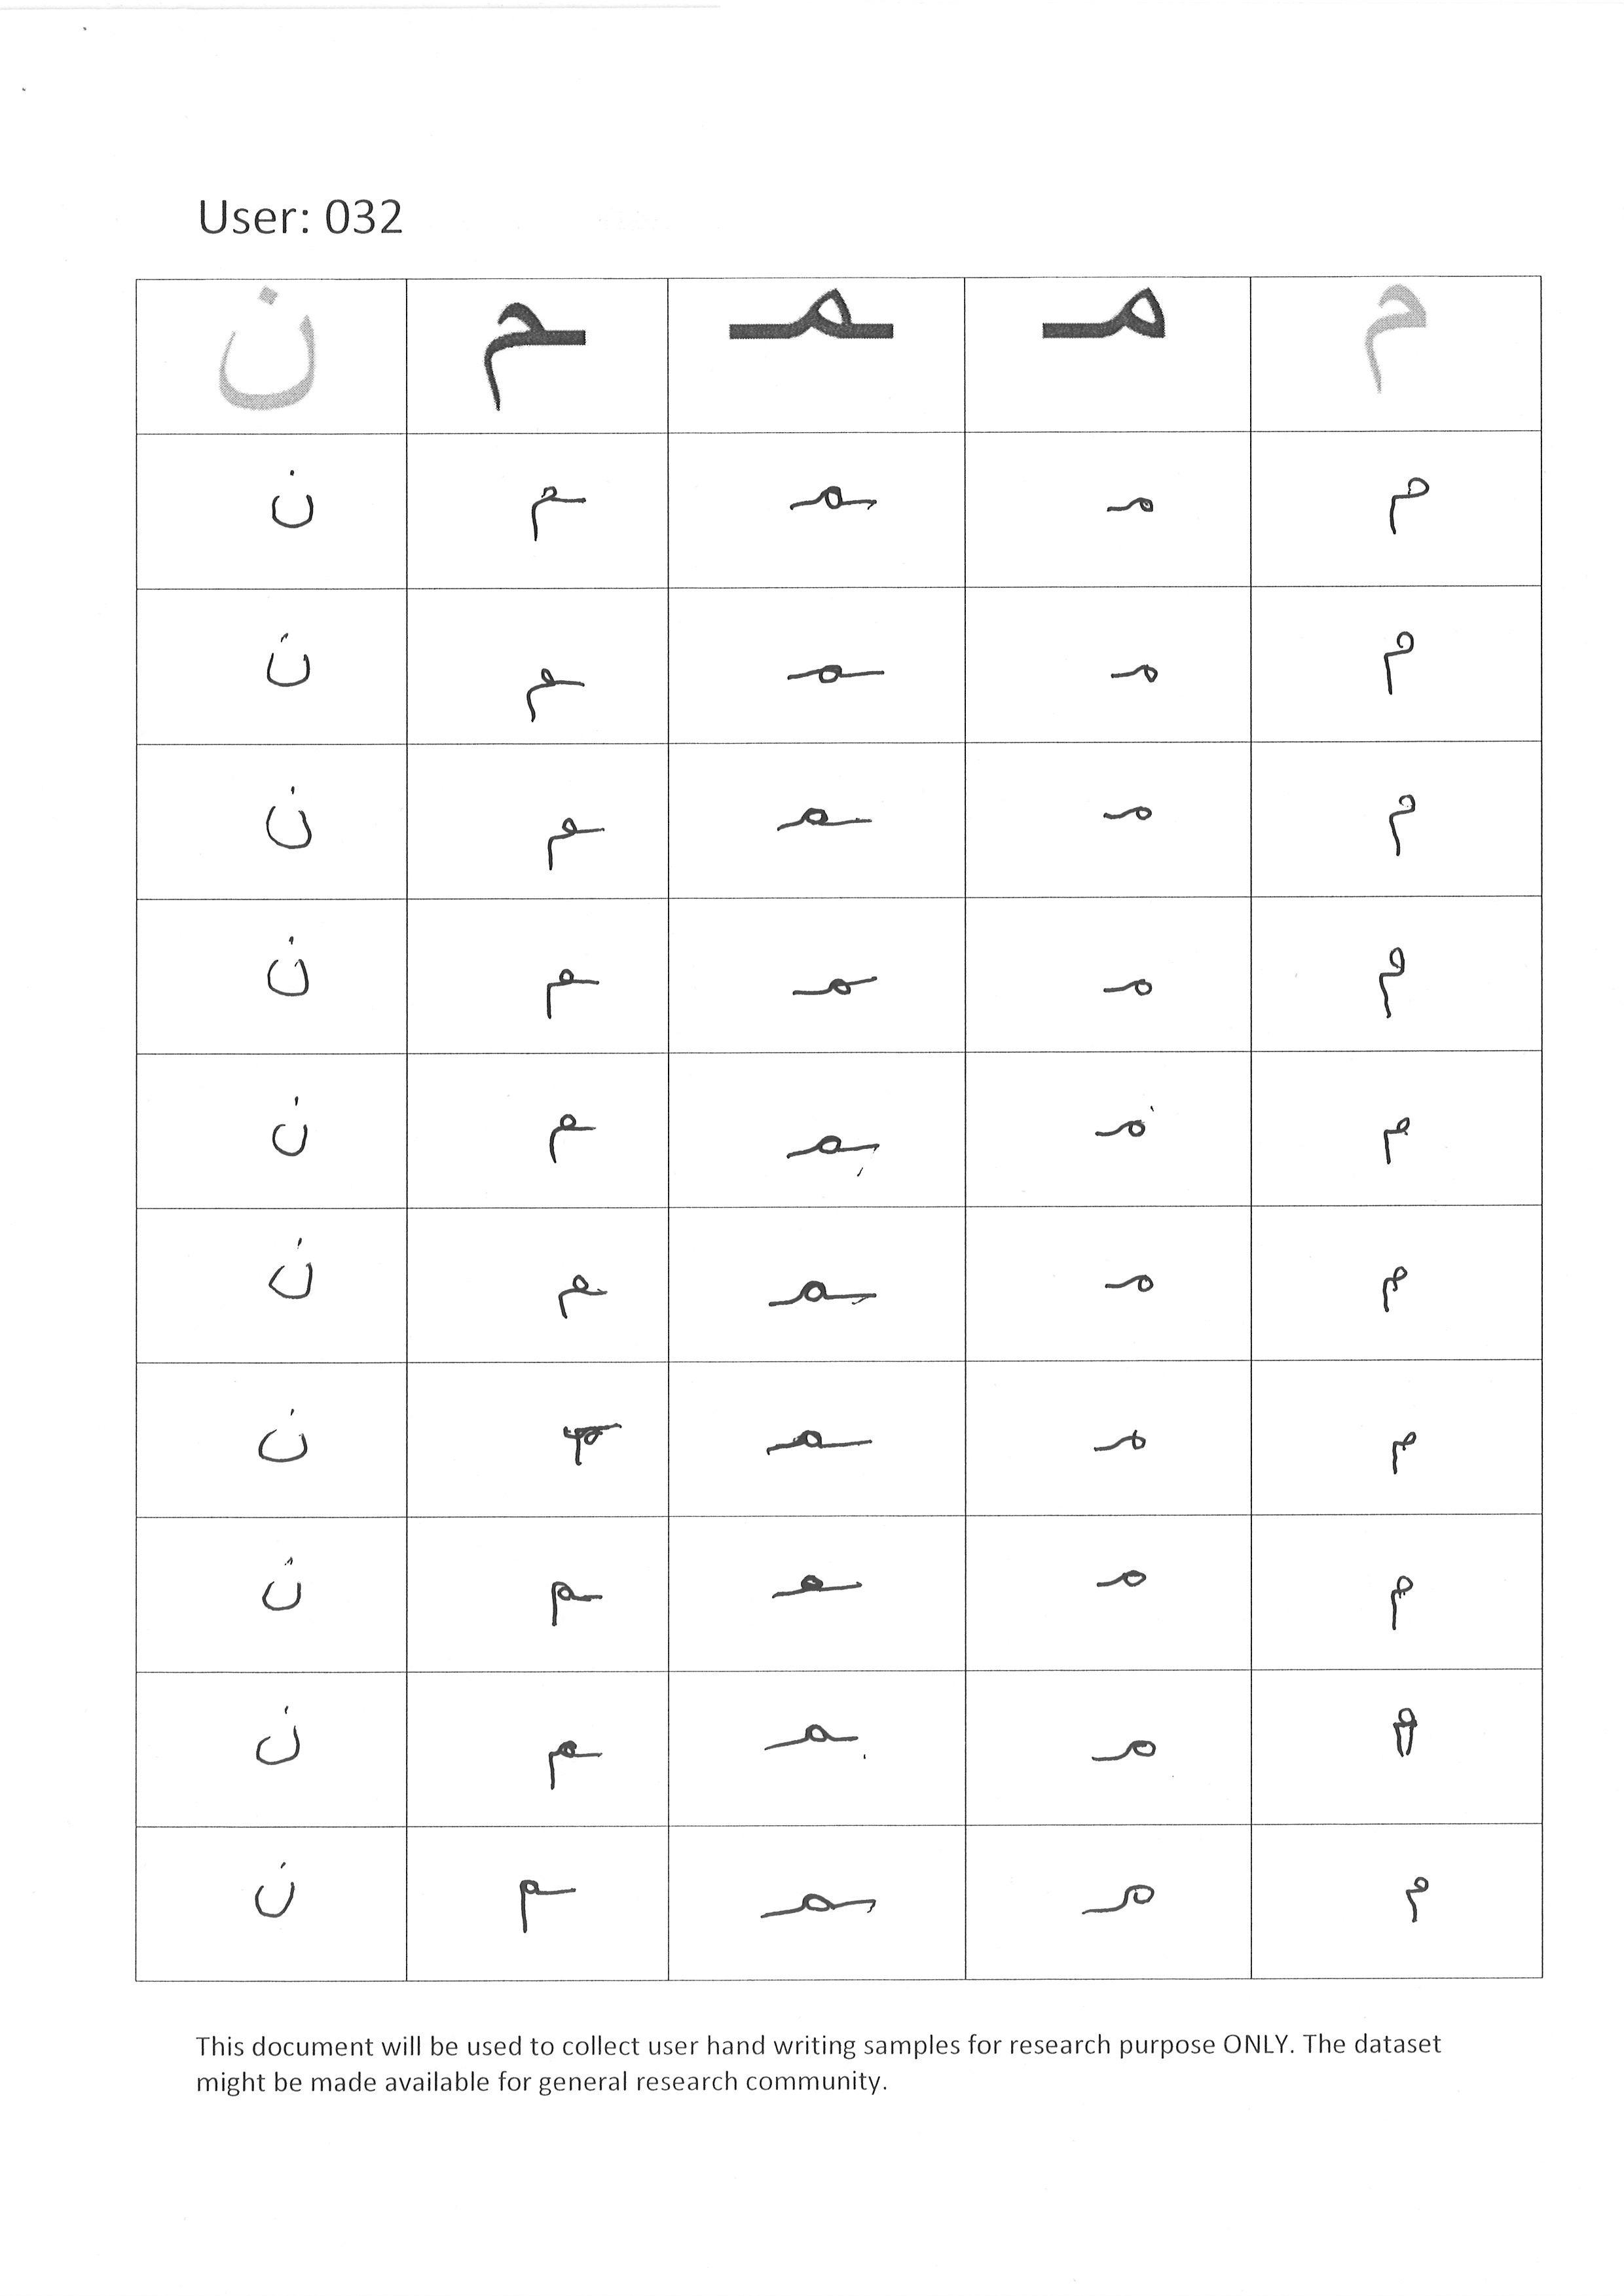 User: 032
م مـ ـمـ ـم ن
م مـ ـمـ ـم ن
م مـ ـمـ ـم ن
م مـ ـمـ ـم ن
م مـ ـمـ ـم ن
م مـ ـمـ ـم ن
م مـ ـمـ ـم ن
م مـ ـمـ ـم ن
م مـ ـمـ ـم ن
م مـ ـمـ ـم ن
م مـ ـمـ ـم ن
This document will be used to collect user hand writing samples for research purpose ONLY. The dataset
might be made available for general research community.